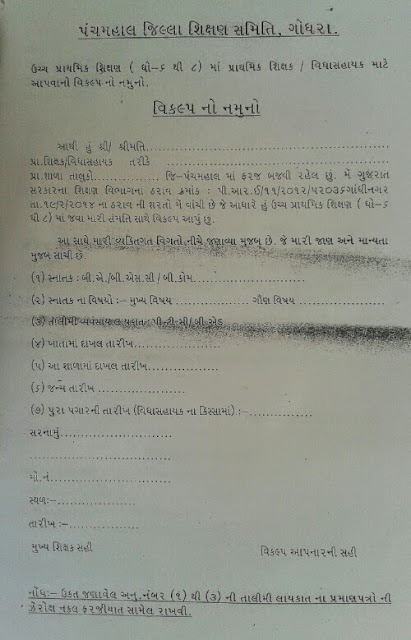 પંચમહાલ જિલ્લા શિક્ષણ સમિતિ, ગોધરા.
ઉચ્ચ પ્રાથમિક શિક્ષણ ( ધો-૬ થી ૮ ) માં પ્રાથમિક શિક્ષક / વિધાસહાયક માટે
આપવાનો વિકલ્પ નો નમુનો.
વિકલ્પ નો નમુનો
આથી હું શ્રી/ શ્રીમતિ..........................................................
પ્રા.શિક્ષક/વિધાસહાયક તરીકે ..........................................
પ્રા.શાળા તાલુકો.................. જિ-પંચમહાલ માં ફરજ બજવી રહેલ છુ. મેં ગુજરાત
સરકારના શિક્ષણ વિભાગના ઠરાવ ક્રમાંક : પી.આર.ઈ/૧૧/૨૦૧૨/૫૨૦૩૬ગાંધીનગર
તા.૧૯/૨/૨૦૧૪ ના ઠરાવ ની શરતો મેં વાંચી છે જે આધારે હું ઉચ્ચ પ્રાથમિક શિક્ષણ ( ધો-૬
થી ૮) માં જવા મારી સંમતિ સાથે વિકલ્પ આપું છું.
આ સાથે મારી વ્યક્તિગત વિગતો નીચે જણાવ્યા મુજબ છે. જે મારી જાણ અને માન્યતા
મુજબ સાચી છે
(૧) સ્નાતક : બી.એ./બી.એસ.સી / બી.કોમ..........................................
(૨) સ્નાતક ના વિષયો :– મુખ્ય વિષય ..................... ગૌણ વિષય .....................
(૩) તાલીમી વ્યવસાયલ પ્રકાર : પી.ટી.સી/બી.એડ
(૪) ખાતામાં દાખલ તારીખ.....................
(૫) આ શાળામાં દાખલ તારીખ.....................
(૬) જન્મ તારીખ .....................
(૭) પુરા પગારની તારીખ (વિધાસહાયક ના કિસ્સામાં) :–...............
સરનામું.........................
..............................
મો.નં.........................
સ્થળ:–...............
તારીખ :–...............
મુખ્ય શિક્ષક સહી
વિકલ્પ આપનારની સહી
નોંધ:– ઉકત જણાવેલ અનુ.નંબર (૧) થી (૩) ની તાલીમી લાયકાત ના પ્રમાણપત્રો ની
ઝેરોક્ષ નકલ ફરજીયાત સામેલ રાખવી.